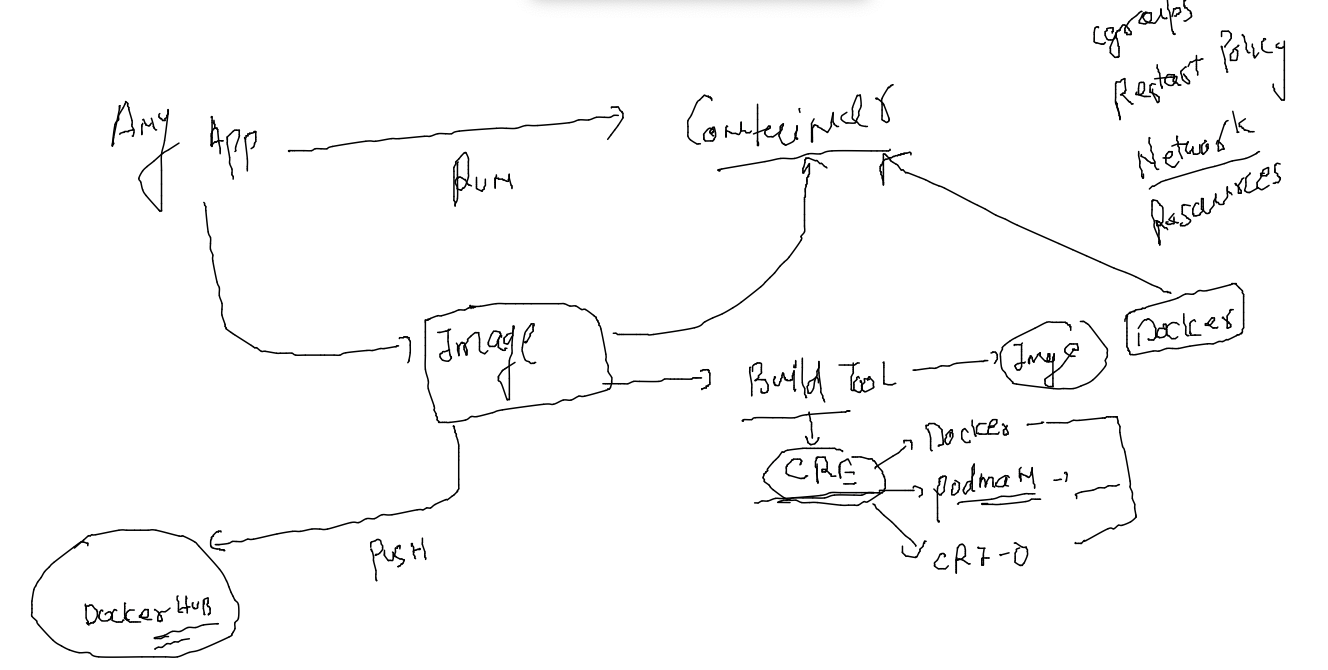 cgroups
Restart Policy
Network
Resources
Any App
Run
Container
Image
Build Tool
Image
Docker
CRE
Docker
podman
CRI-O
Push
Docker Hub